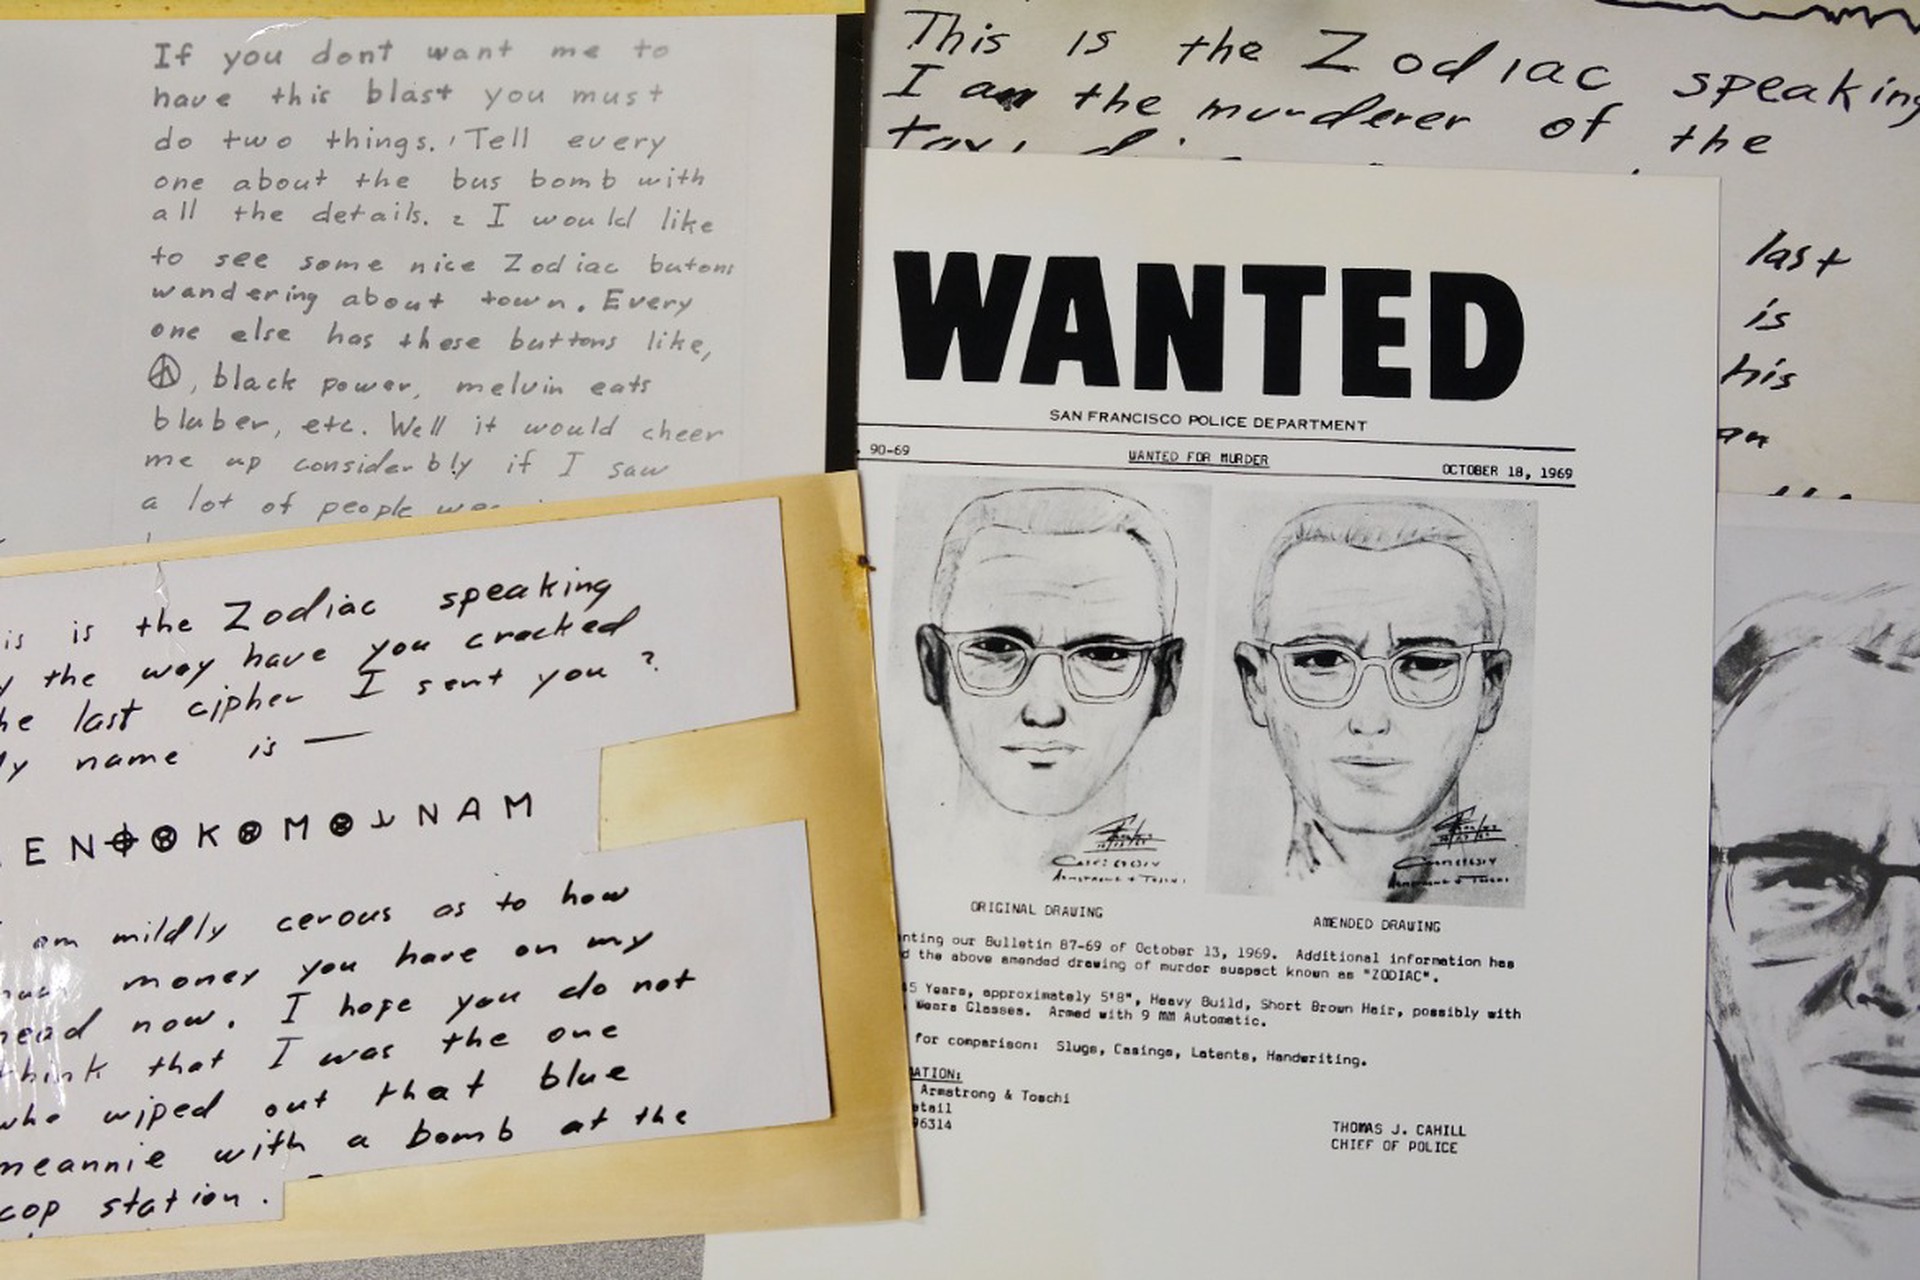 If you dont want me to
have this blast you must
do two things. 1 Tell every
one about the bus bomb with
all the details. 2 I would like
to see some nice Zodiac butons
wandering about town. Every
one else has these buttons like,
☮, black power, melvin eats
bluber, etc. Well it would cheer
me up considerbly if I saw
a lot of people
is is the Zodiac speaking
y the way have you cracked
he last cipher I sent you ?
y name is —
E N K M N A M
am mildly cerous as to how
money you have on my
head now. I hope you do not
think that I was the one
who wiped out that blue
meannie with a bomb at the
cop station.
This is the Zodiac speaking
I am the murderer of the
last
is
his
an
WANTED
SAN FRANCISCO POLICE DEPARTMENT
90-69 WANTED FOR MURDER OCTOBER 18, 1969
ORIGINAL DRAWING AMENDED DRAWING
nting our Bulletin 87-69 of October 13, 1969. Additional information has
d the above amended drawing of murder suspect known as "ZODIAC".
5 Years, approximately 5'8", Heavy Build, Short Brown Hair, possibly with
Wears Glasses. Armed with 9 MM Automatic.
for comparison: Slugs, Casings, Latents, Handwriting.
ATION:
Armstrong & Toschi
etail
96314
THOMAS J. CAHILL
CHIEF OF POLICE